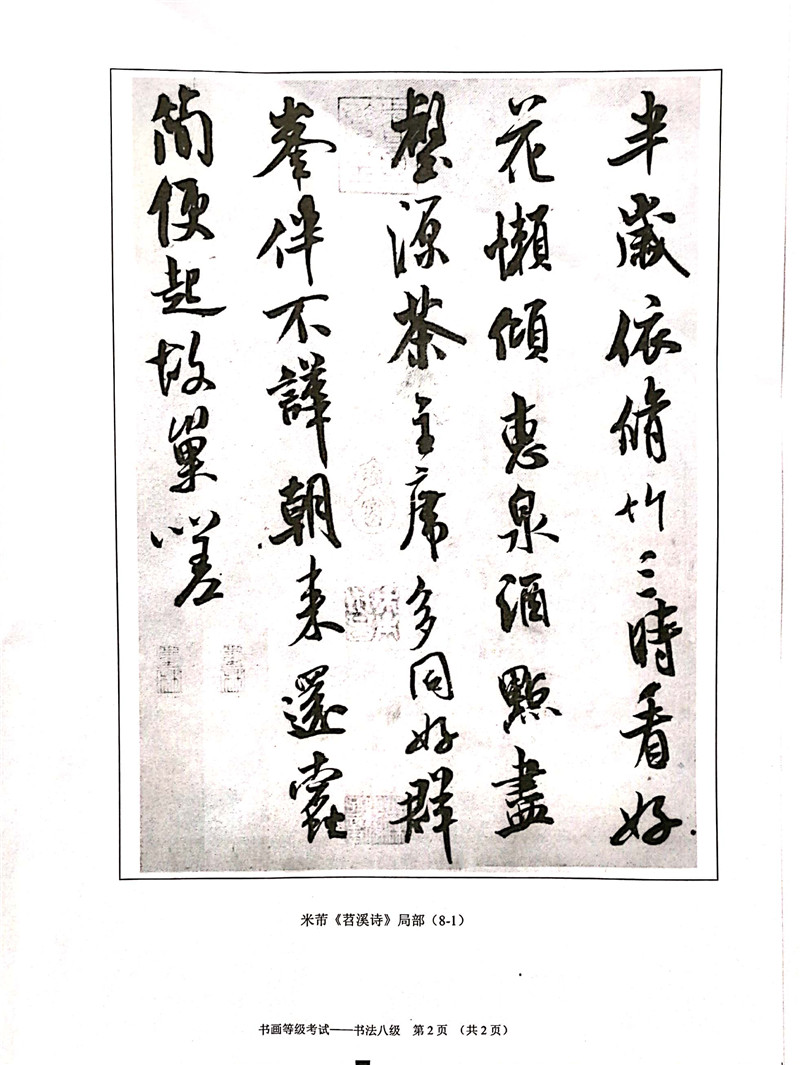 半歲依脩竹三時看好
花懶傾惠泉酒點盡
壑源茶主席多同好群
峯伴不譁朝来還蠹
簡便起故巢嗟
米芾《苕溪诗》局部（8-1）
书画等级考试——书法八级 第2页 （共2页）